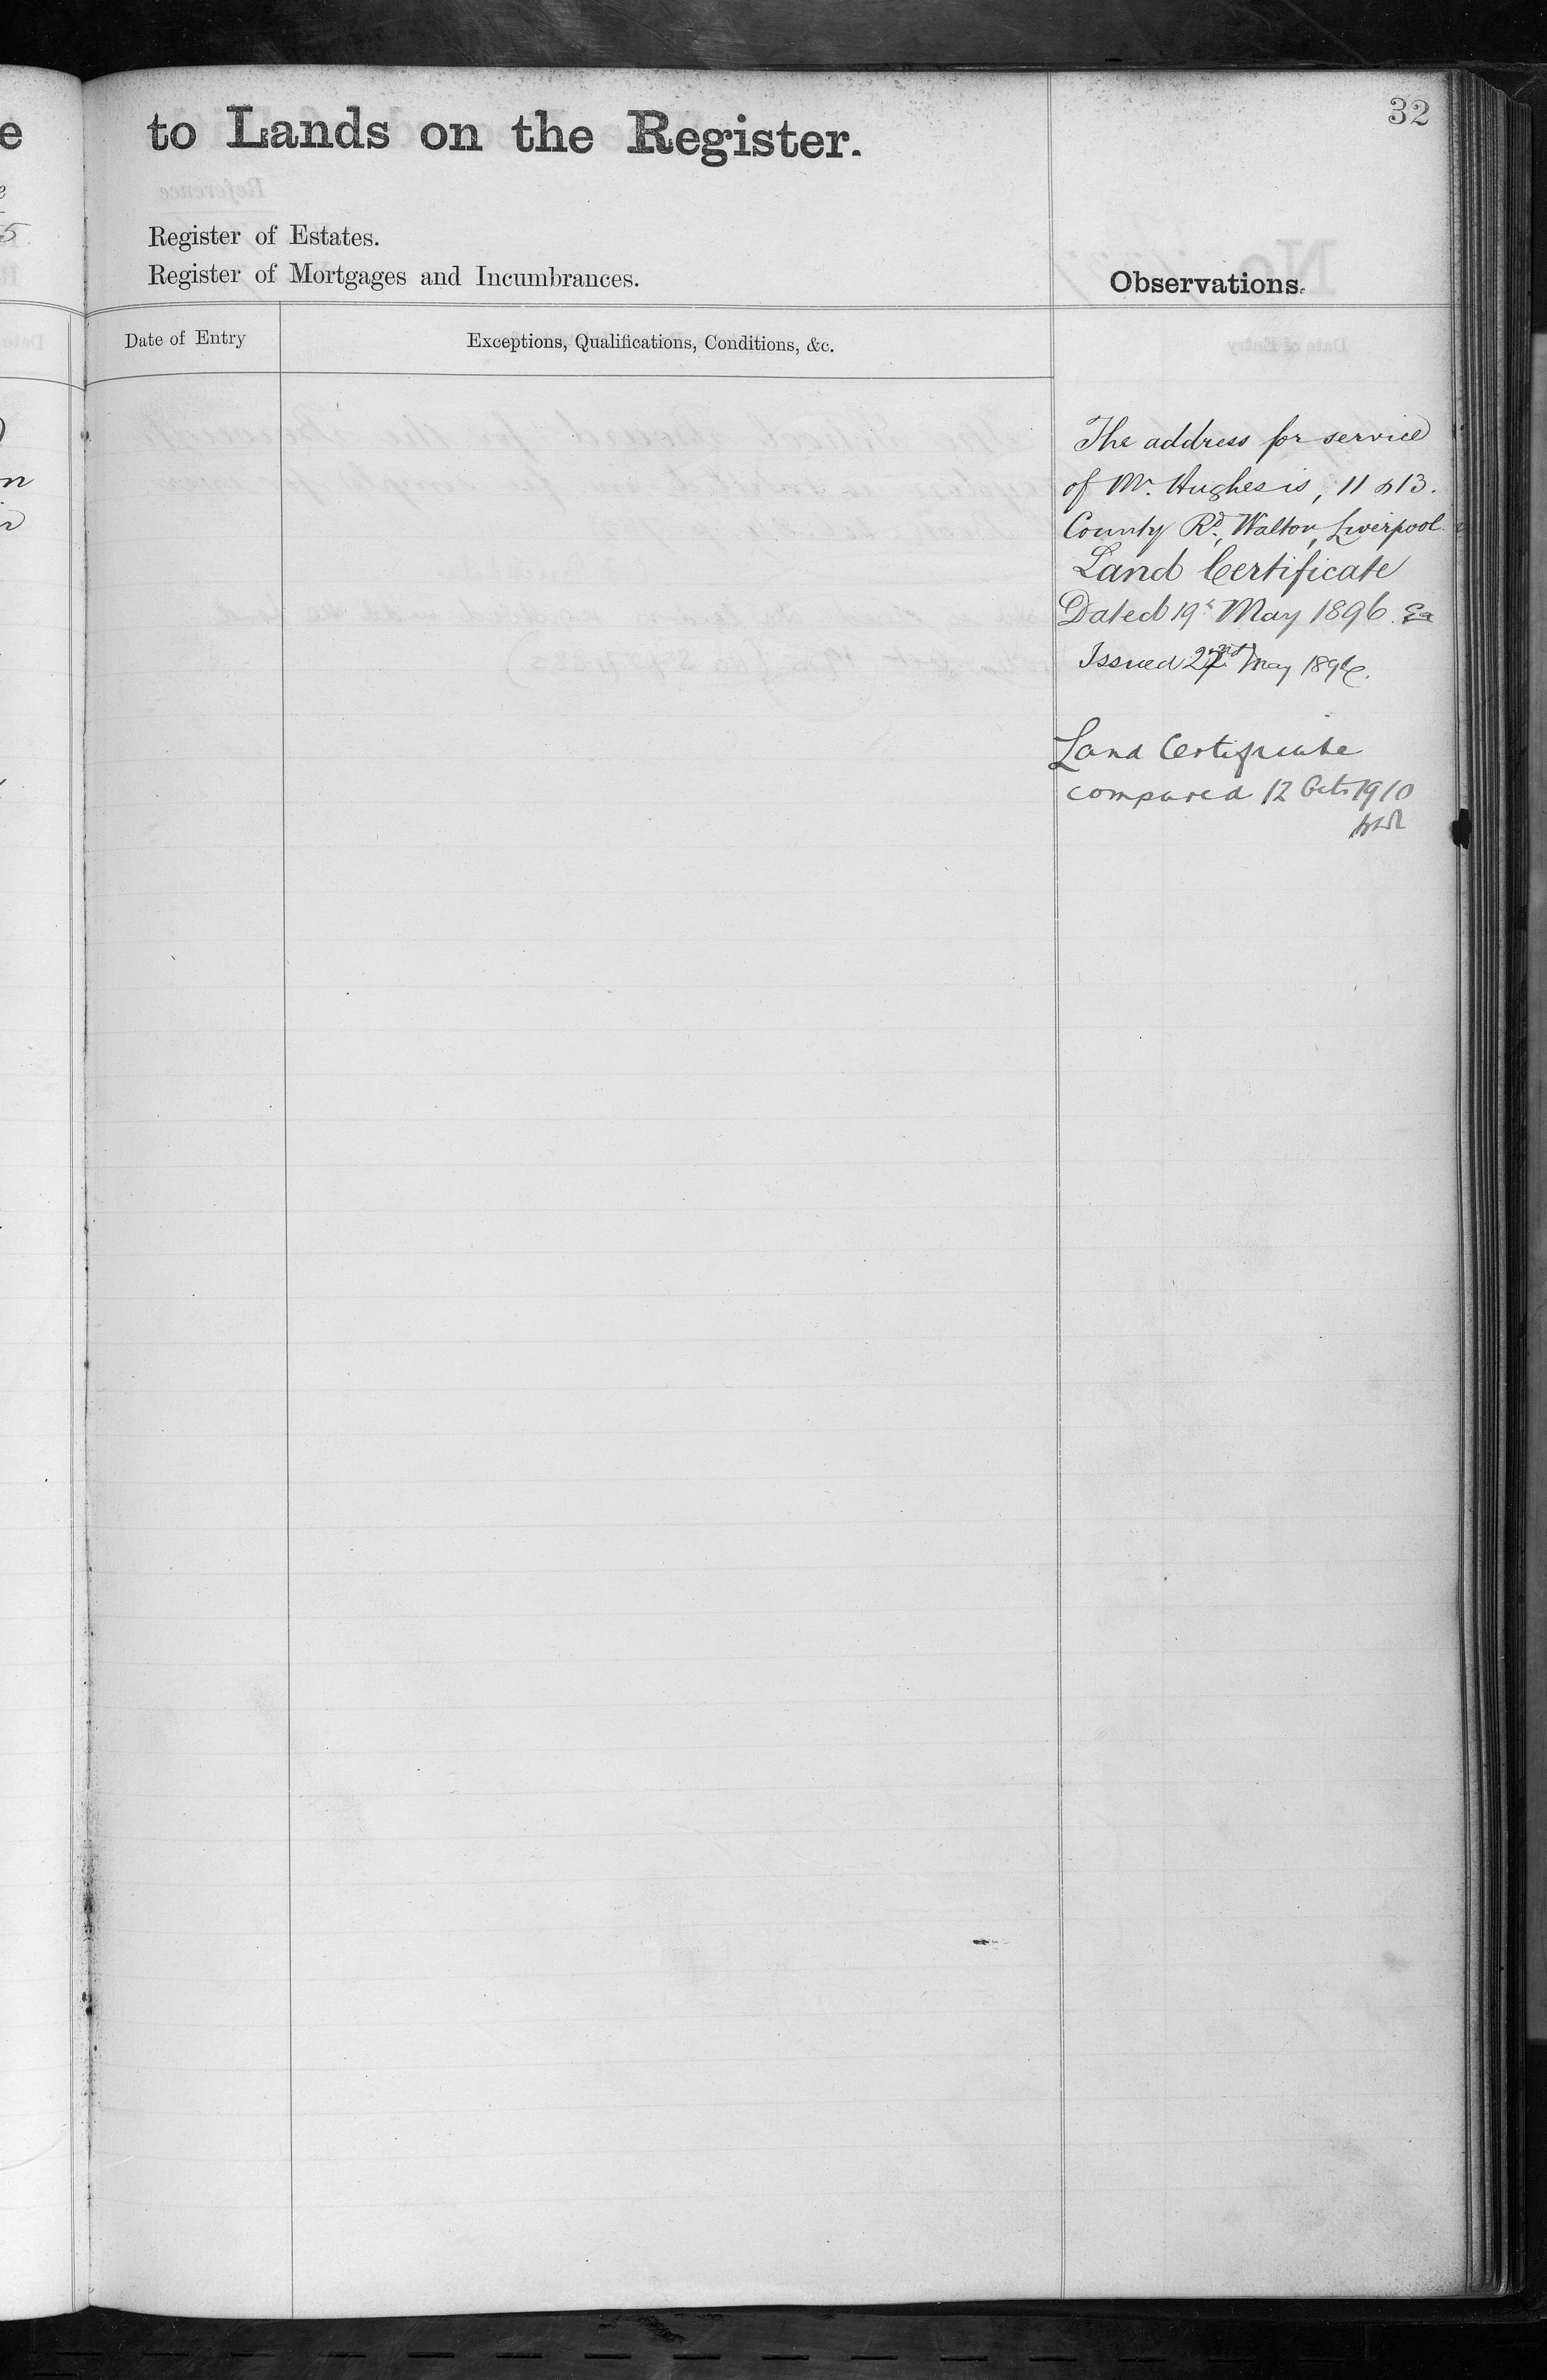 32
to Lands on the Register.
Register of Estates.
Register of Mortgages and Incumbrances.
Observations.
Date of Entry
Exceptions, Qualifications, Conditions, &c.
The address for service
of Mr. Hughes is, 11 & 13.
County Rd., Walton, Liverpool.
Land Certificate
Dated 19th May 1896.
Issued May 1896.
Land Certificate
compared 12 Oct. 1910